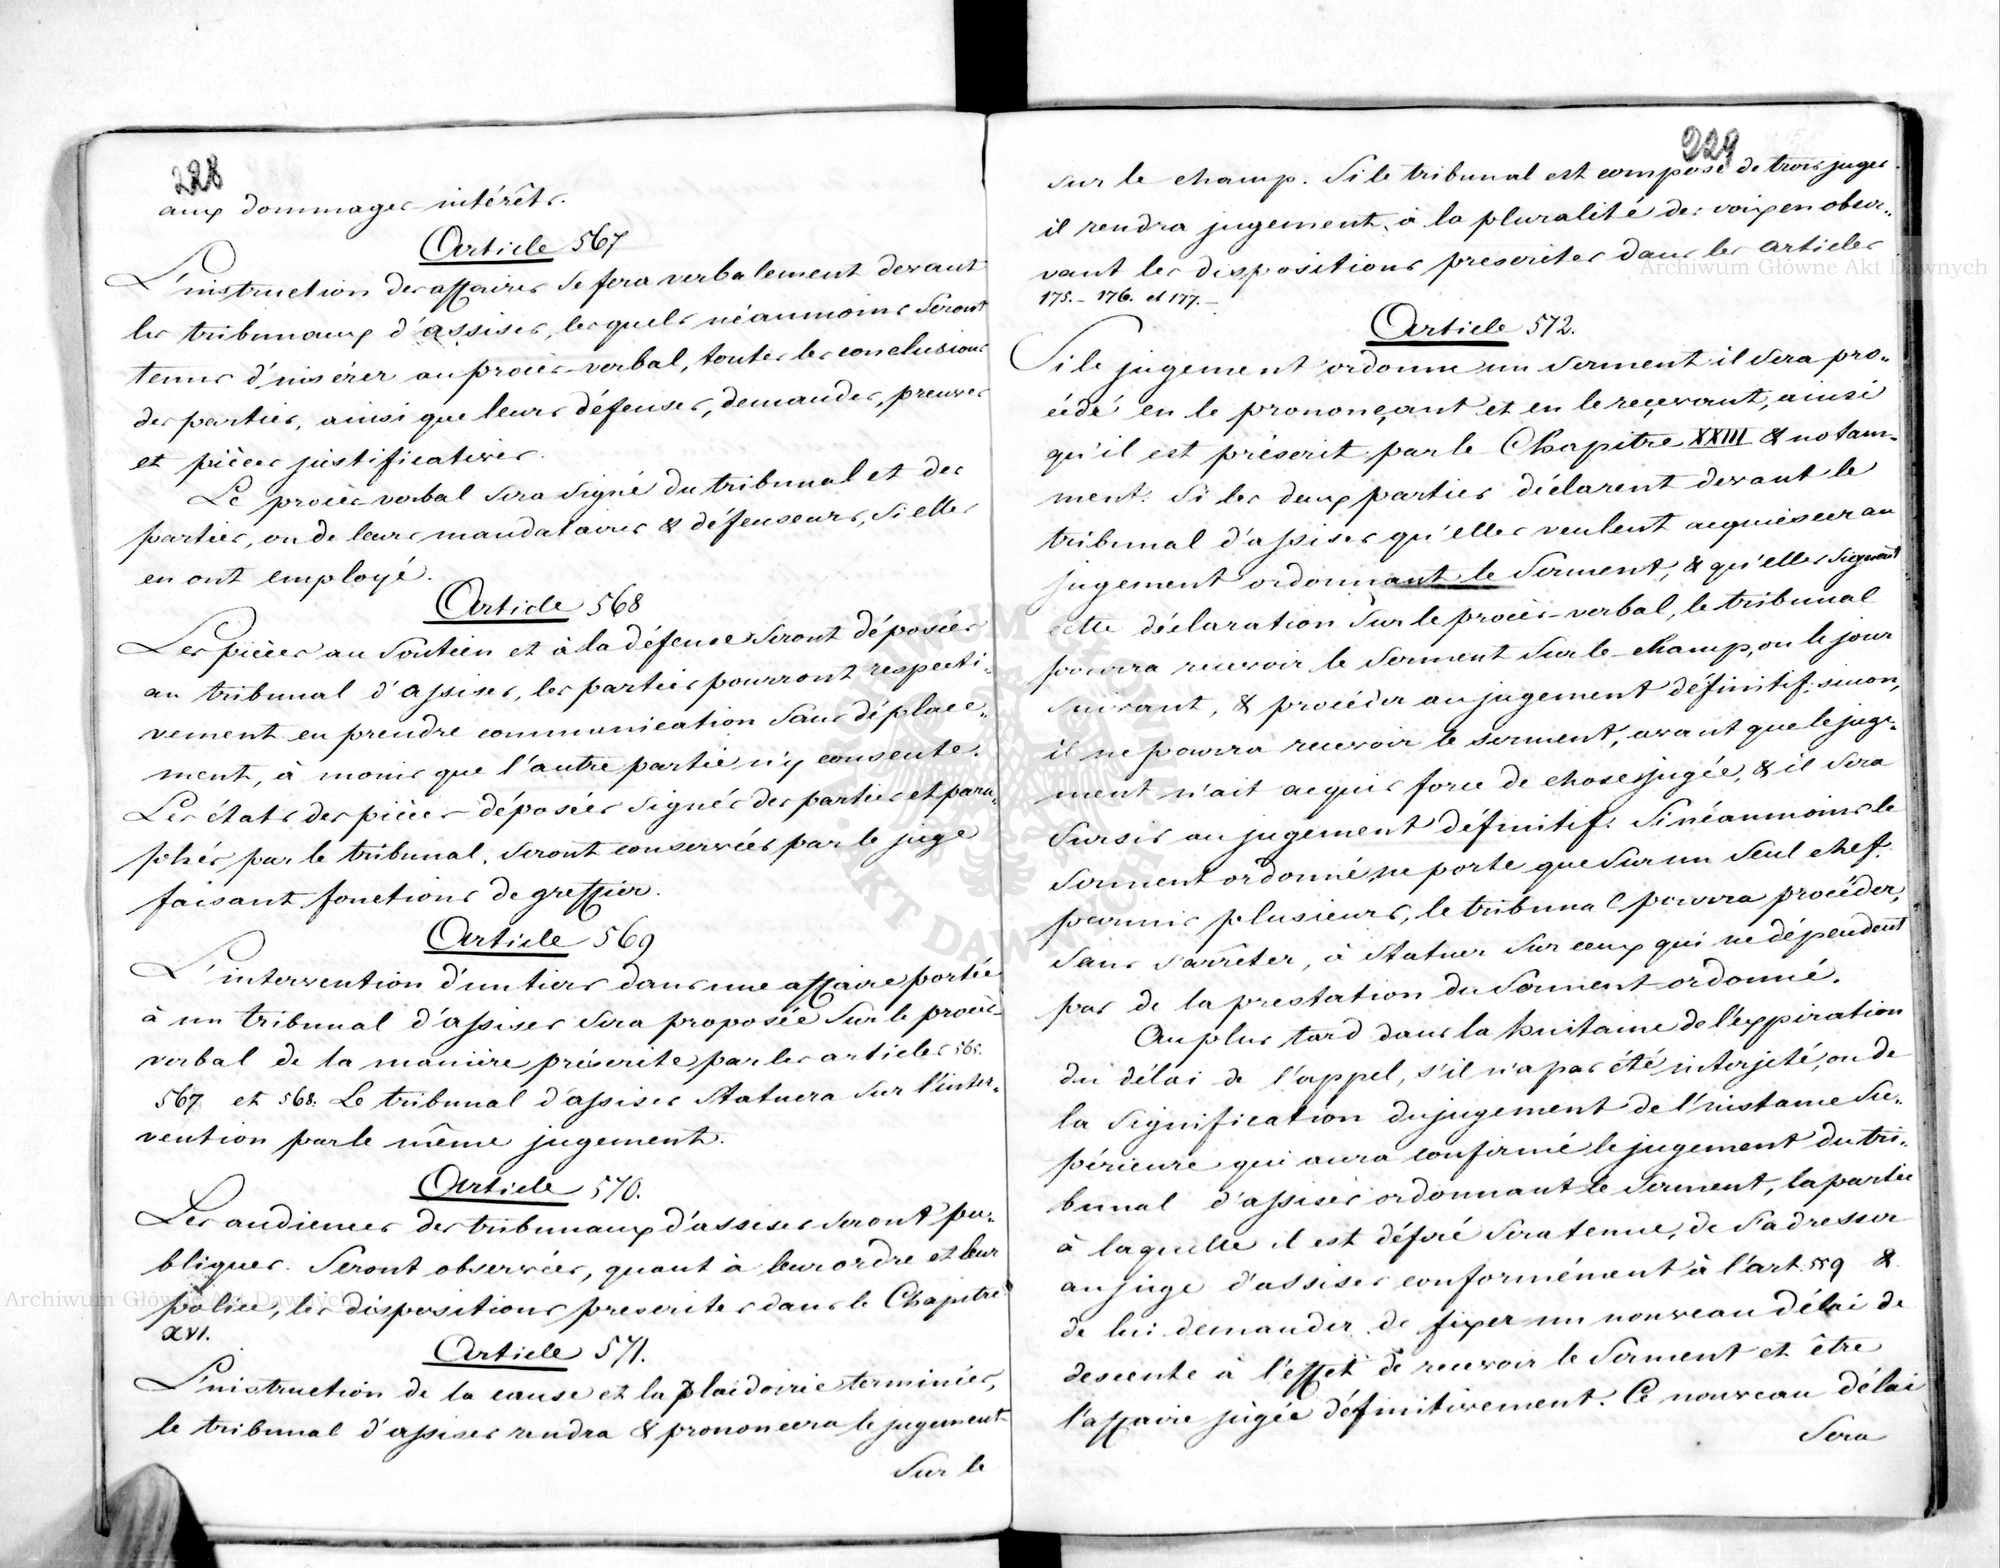 228
aux dommages-intérêts.
Article 567
L'instruction des affaires se fera verbalement devant
les tribunaux d'assises, lesquels néanmoins seront
tenus d'insérer au procès-verbal, toutes les conclusions
des parties, ainsi que leurs défenses, demandes, preuves
et pièces justificatives.
Le procès verbal sera signé du tribunal et des
parties, ou de leurs mandataires & défenseurs, si elles
en ont employé.
Article 568
Les pièces au soutien et à la défense seront déposées
au tribunal d'assises, les parties pourront respecti-
vement en prendre communication sans déplace-
ment, à moins que l'autre partie n'y consente.
Les états des pièces déposées signés des parties et para-
phés par le tribunal, seront conservées par le juge
faisant fonctions de greffier.
Article 569
L'intervention d'un tiers dans une affaire portée
à un tribunal d'assises sera proposée sur le procès-
verbal de la manière préscrite par les articles 565.
567 et 568. Le tribunal d'assises statuera sur l'inter-
vention par le même jugement.
Article 570.
Les audiences des tribunaux d'assises seront pu-
bliques. Seront observées, quant à leur ordre et leur
police, les dispositions prescrites dans le Chapitre
XVI.
Article 571.
L'instruction de la cause et la plaidoirie terminées,
le tribunal d'assises rendra & prononcera le jugement
sur le
229
sur le champ. Si le tribunal est composé de trois juges
il rendra jugement à la pluralité des voix en obser-
vant les dispositions prescrites dans les articles
175. - 176. et 177. -
Article 572.
Si le jugement ordonne un serment il sera pro-
cédé en le prononçant et en le reçevant, ainsi
qu'il est préscrit par le Chapitre XXIII & notam-
ment: si les deux parties déclarent devant le
tribunal d'assises qu'elles veulent acquiescer au
jugement ordonnant le serment, & qu'elles signent
cette déclaration sur le procès-verbal, le tribunal
pourra recevoir le serment sur le champ, ou le jour
suivant, & procéder au jugement définitif; sinon,
il ne pourra recevoir le serment, avant que le juge-
ment n'ait acquis force de chose jugée, & il sera
sursis au jugement définitif. Si néanmoins le
serment ordonné ne porte que sur un seul chef
parmis plusieurs, le tribunal pourra procéder,
sans s'arrêter, à statuer sur ceux qui ne dépendent
pas de la prestation du serment ordonné.
Au plus tard dans la huitaine de l'expiration
du délai de l'appel, s'il n'a pas été interjeté, ou de
la signification du jugement de l'instance su-
périeure qui aura confirmé le jugement du tri-
bunal d'assises ordonnant le serment, la partie
à laquelle il est déféré sera tenue, de s'adresser
au juge d'assises conformément à l'art. 559 &
de lui demander de fixer un nouveau délai de
descente à l'effet de recevoir le serment et être
l'affaire jugée définitivement. Ce nouveau délai
sera
Archiwum Główne Akt Dawnych
Archiwum Główne Akt Dawnych